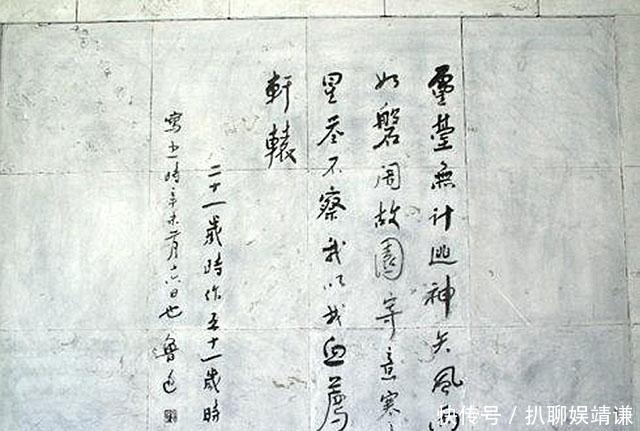 靈臺無計逃神矢風雨
如磐闇故園寄意寒
星荃不察我以我血薦
軒轅
二十一歲時作五十一歲時
寫之時辛未二月十六日也 魯迅
快传号／扒聊娱靖谦